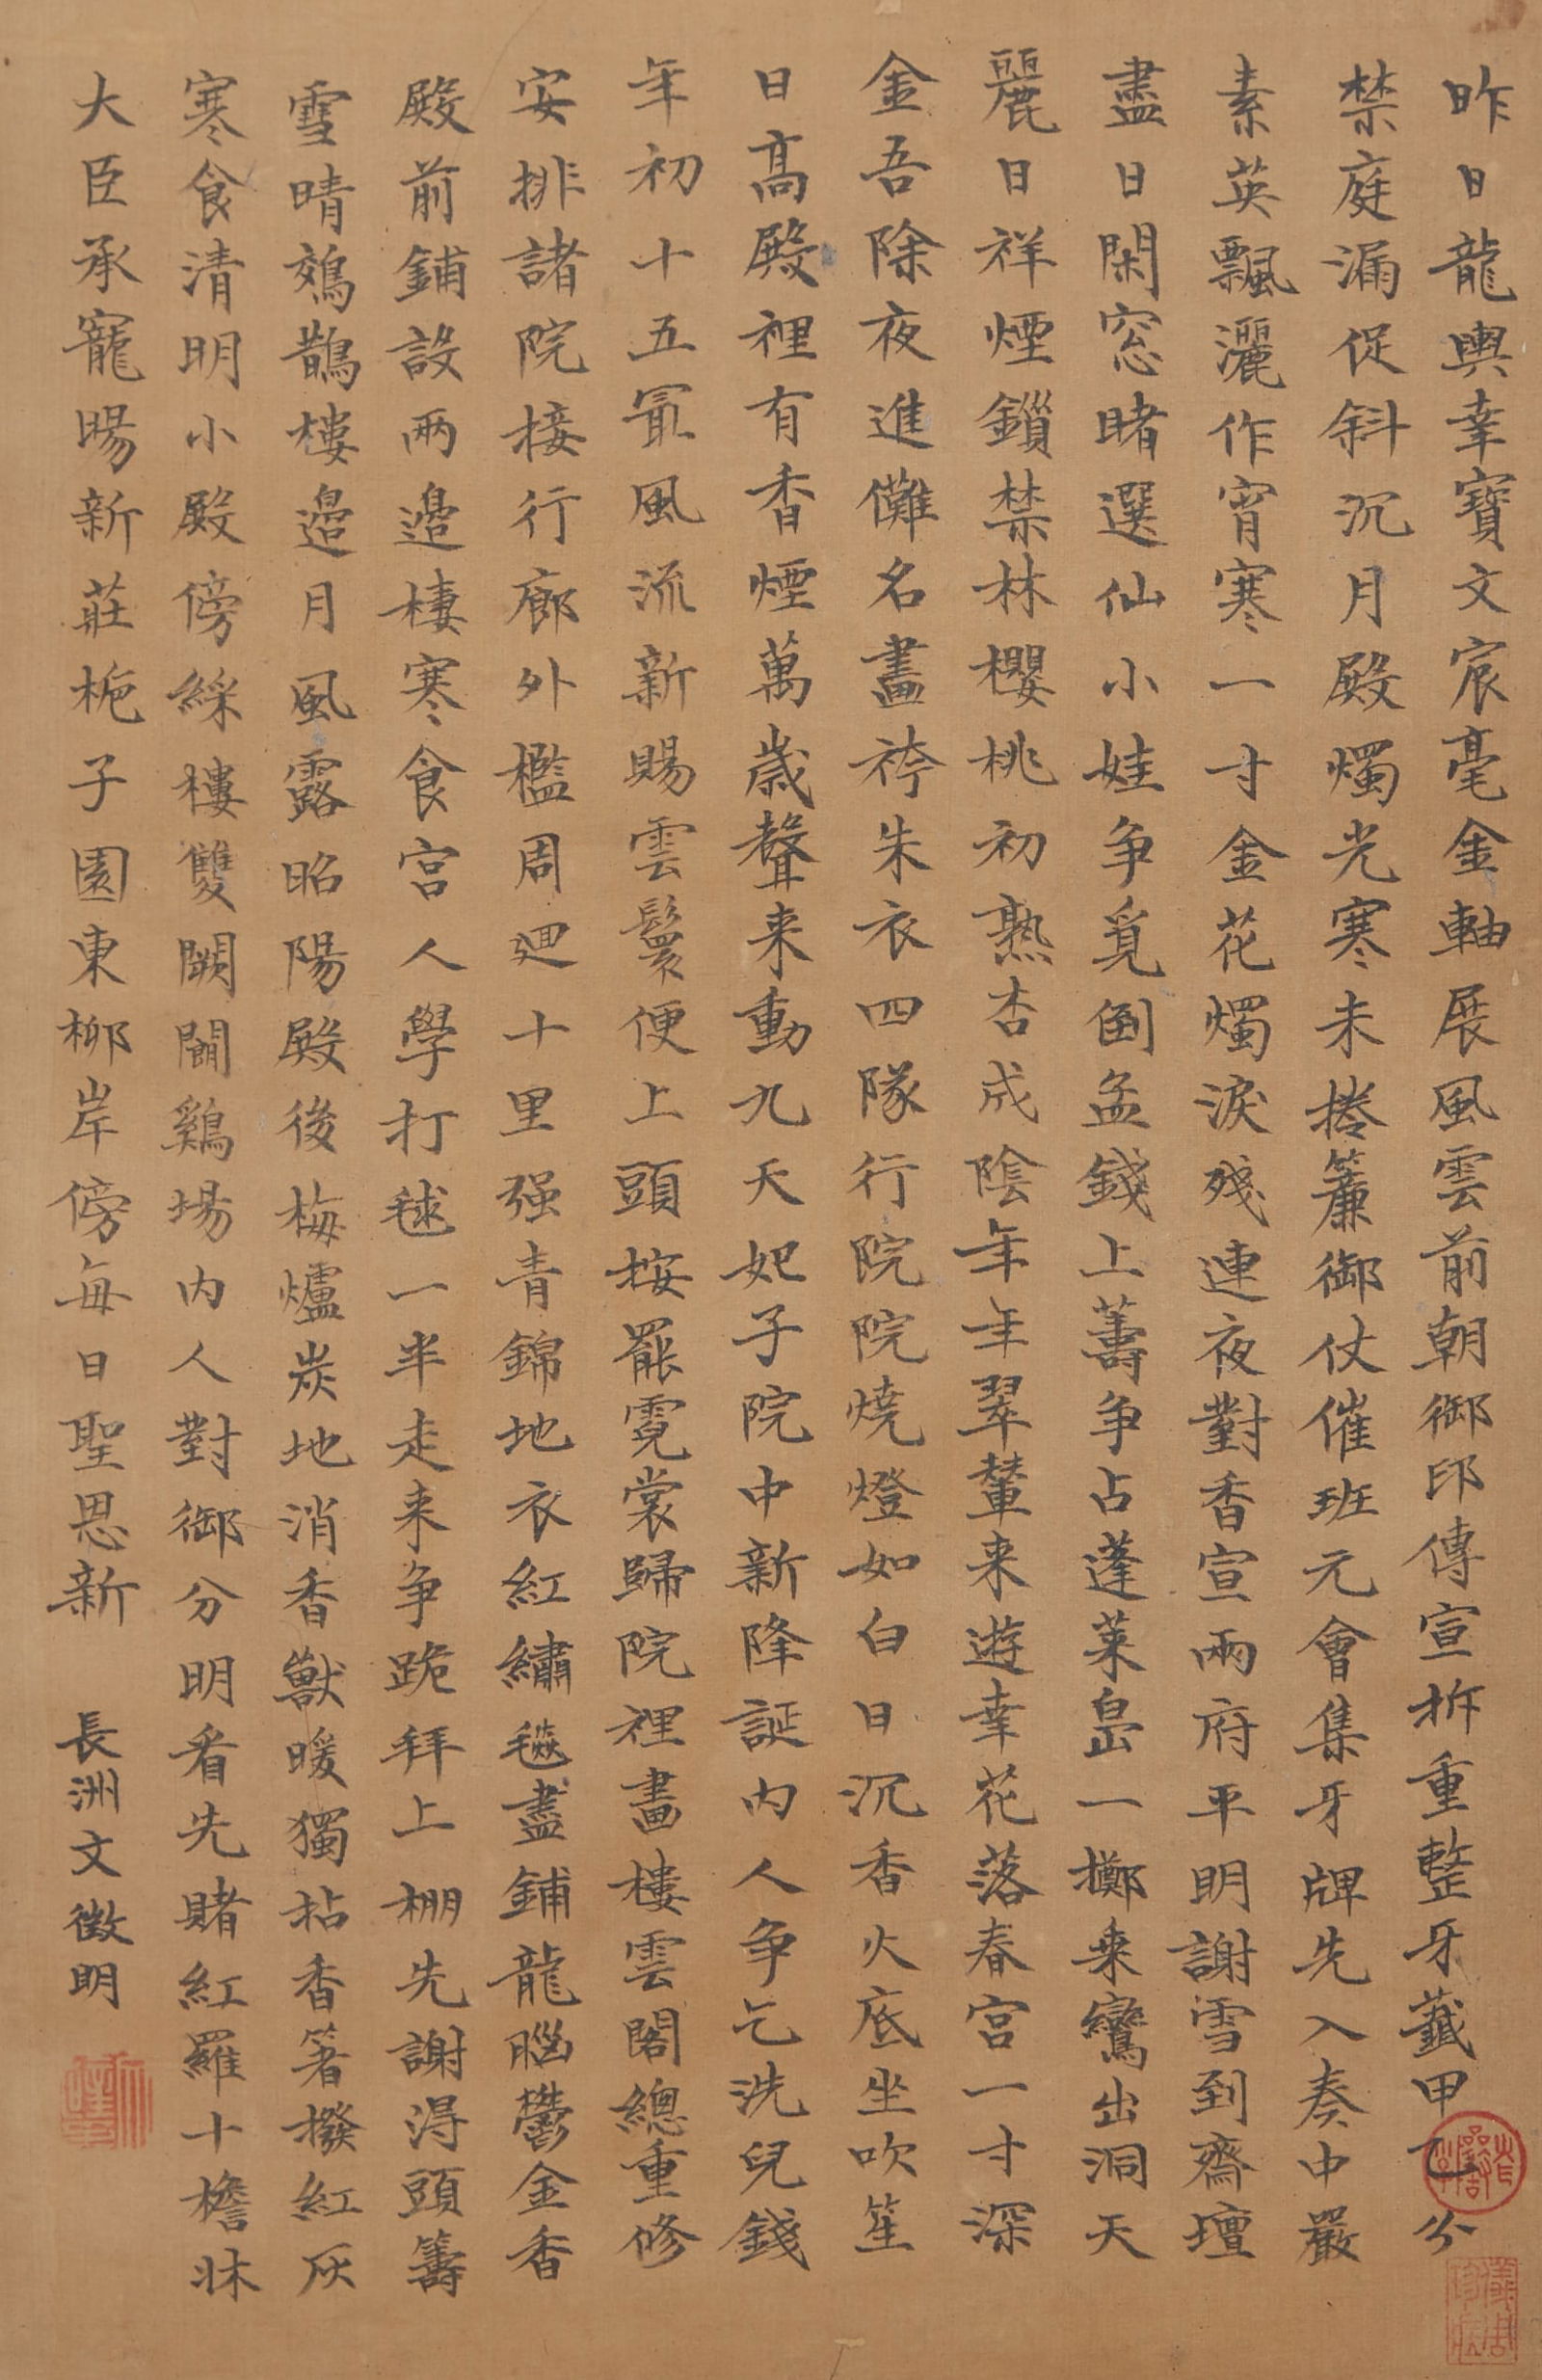 昨日龍輿幸寶文宸毫金軸展風雲前朝御印傳宣拆重整牙籤甲乙分
禁庭漏促斜沉月殿燭光寒未捲簾御仗催班元會集牙牌先入奏中嚴
素英飄灑作宵寒一寸金花燭淚殘連夜對香宣兩府平明謝雪到齋壇
盡日閑窓睹選仙小娃争覓倒盃錢上籌争占蓬萊島一擲乘鸞出洞天
麗日祥煙鎖禁林櫻桃初熟杏成陰年年翠輦来遊幸花落春宮一寸深
金吾除夜進儺名畫袴朱衣四隊行院院燒燈如白日沉香火底坐吹笙
日高殿裡有香煙萬歲聲来動九天妃子院中新降誕内人争乞洗兒錢
年初十五冣風流新賜雲鬟便上頭按罷霓裳歸院裡畫樓雲閣總重修
安排諸院接行廊外檻周廻十里强青錦地衣紅繡毯盡鋪龍腦鬱金香
殿前鋪設兩邉樓寒食宮人學打毬一半走来争跪拜上棚先謝淂頭籌
雪晴鳷鵲樓邉月風露昭陽殿後梅爐炭地消香獸暖獨拈香箸撥紅灰
寒食清明小殿傍綵樓雙闕鬪鷄場内人對御分明看先賭紅羅十檐牀
大臣承寵賜新莊栀子園東柳岸傍每日聖恩新
長洲文徵明